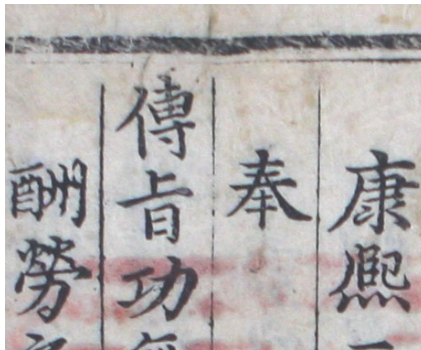 康熙
奉
傳旨功
酬勞